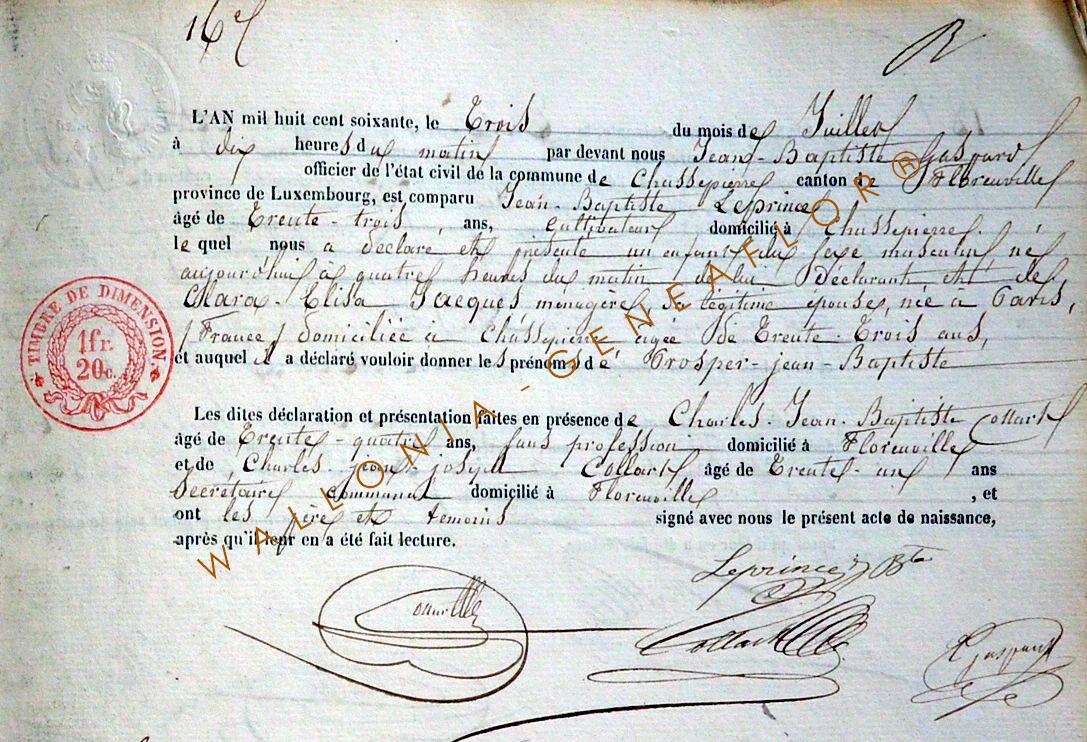 16e
R
L'AN mil huit cent soixante, le Trois du mois de Juillet
à dix heures du matin par devant nous Jean-Baptiste Gaspard
officier de l'état civil de la commune de Chassepierre canton de Florenville
province de Luxembourg, est comparu Jean-Baptiste Leprince
âgé de Trente-trois ans, Cultivateur domicilié à Chassepierre
lequel nous a déclaré et présenté un enfant du sexe masculin, né
aujourd'hui à quatre heures du matin de lui Déclarant et de
Clara-Elisa Jacques ménagère sa légitime épouse, née à Paris,
/France/ domiciliée à Chassepierre agée de Trente-Trois ans,
et auquel il a déclaré vouloir donner les prénoms de Prosper-jean-Baptiste
Les dites déclaration et présentation faites en présence de Charles-Jean-Baptiste Collart
âgé de Trente-quatre ans, sans profession domicilié à Florenville
et de Charles-jean-joseph Collart âgé de Trente-un ans
Secrétaire communal domicilié à Florenville, et
ont les père et temoins signé avec nous le présent acte de naissance,
après qu'il leur en a été fait lecture.
Leprince J Bte
Collart
Collart
Gaspard
TIMBRE DE DIMENSION
1fr.
20c.
WALLONIA-GENEAFLOR®